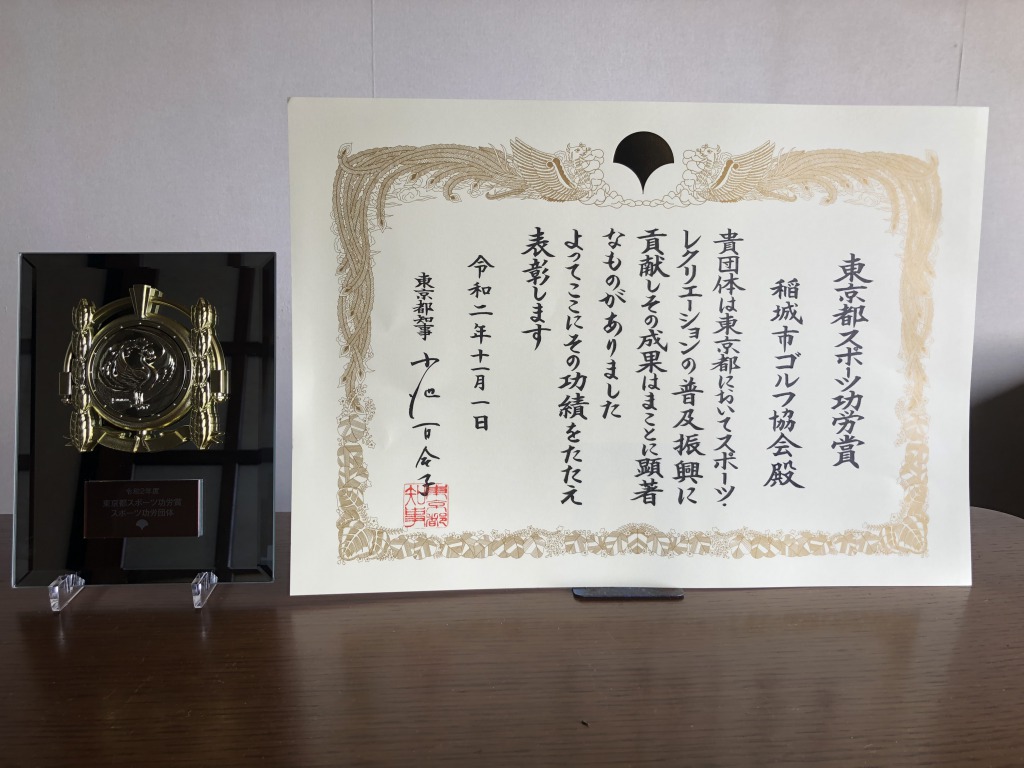 東京都スポーツ功労賞
稲城市ゴルフ協会殿
貴団体は東京都においてスポーツ・
レクリエーションの普及振興に
貢献しその成果はまことに顕著
なものがありました
よってここにその功績をたたえ
表彰します
令和二年十一月一日
東京都知事 小池百合子
東京都
知事
令和2年度
東京都スポーツ功労賞
スポーツ功労団体